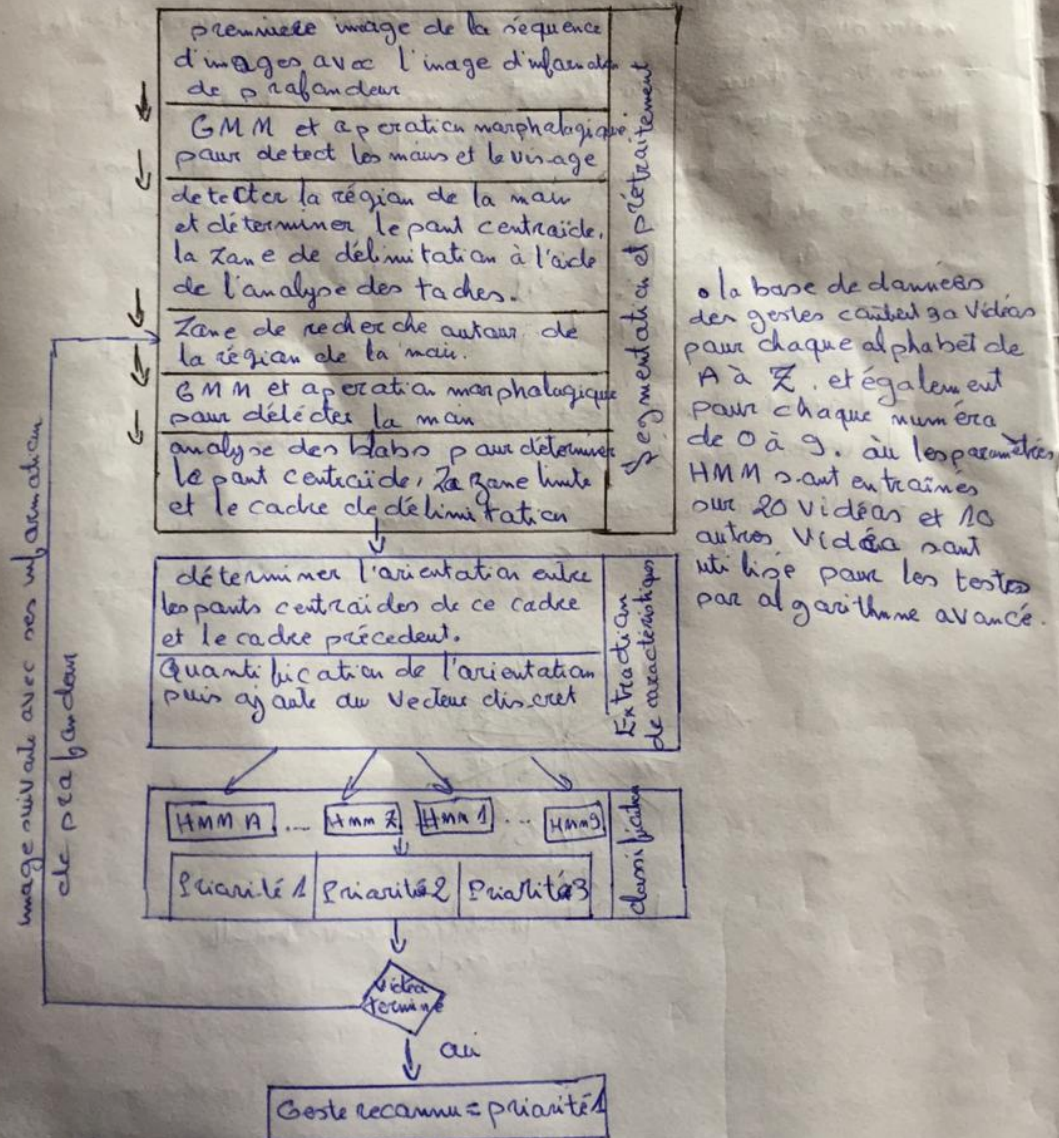 premiere image de la séquence
d'images avec l'image d'information
de profondeur
GMM et operation morphologique
pour detect les mains et le visage
detecter la région de la main
et déterminer le point centroïde,
la zone de délimitation à l'aide
de l'analyse des taches.
Zone de recherche autour de
la région de la main.
GMM et operation morphologique
pour détécter la man
analyse des blobs pour déterminer
le point centroïde, la zone limite
et le cadre de délimitation
Segmentation et prétraitement
déterminer l'orientation entre
les points centroïdes de ce cadre
et le cadre précedent.
Quantification de l'orientation
puis ajoute au vecteur discret
Extraction
de caractéristiques
HMM A .... HMM Z HMM 1 ... HMM 9
Priorité 1 Priorité 2 Priorité 3
classification
vidéo
terminé
oui
Geste reconnu = priorité 1
image suivante avec ses information
de profondeur
• la base de données
des gestes contient 30 Vidéos
pour chaque alphabet de
A à Z. et également
pour chaque numéro
de 0 à 9. où les paramètres
HMM sont entraînés
sur 20 vidéos et 10
autres Vidéo sont
utilisé pour les testes
par algorithme avancé.